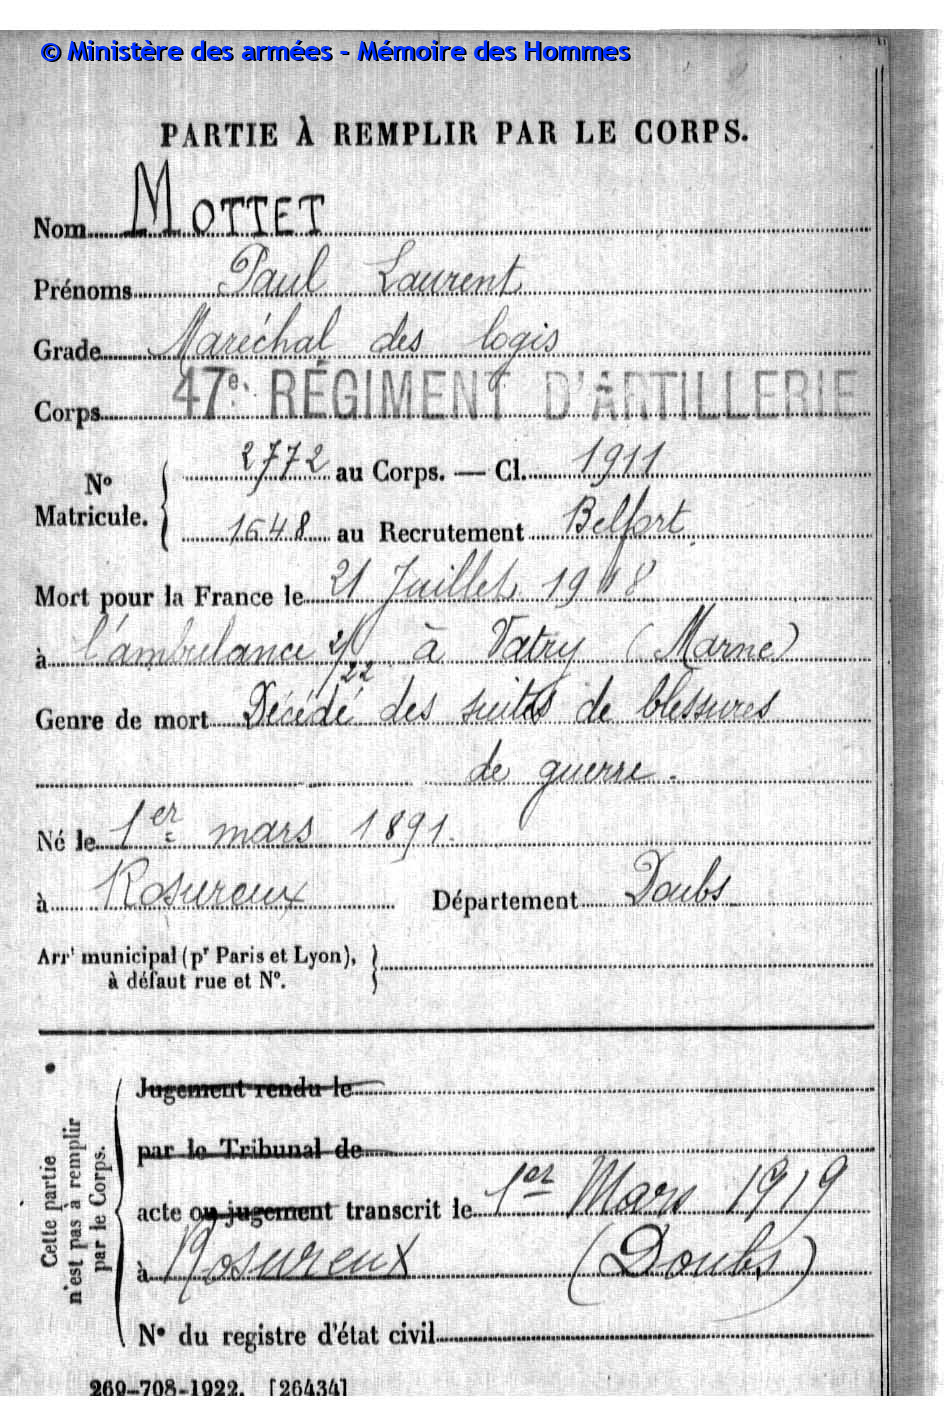 © Ministère des armées - Mémoire des Hommes
PARTIE À REMPLIR PAR LE CORPS.
Nom MOTTET
Prénoms Paul Laurent
Grade Maréchal des logis
Corps 47e RÉGIMENT D'ARTILLERIE
N° Matricule. 2772 au Corps. — Cl. 1911
1648 au Recrutement Belfort
Mort pour la France le 21 Juillet 1918
à l'ambulance 2/22 à Vatry (Marne)
Genre de mort Décédé des suites de blessures
de guerre.
Né le 1er mars 1891.
à Rosureux Département Doubs
Arrt municipal (pr Paris et Lyon),
à défaut rue et N°.
Cette partie
n'est pas à remplir
par le Corps.
Jugement rendu le
par le Tribunal de
acte ou jugement transcrit le 1er Mars 1919
à Rosureux (Doubs)
N° du registre d'état civil
269-708-1922. [26434]